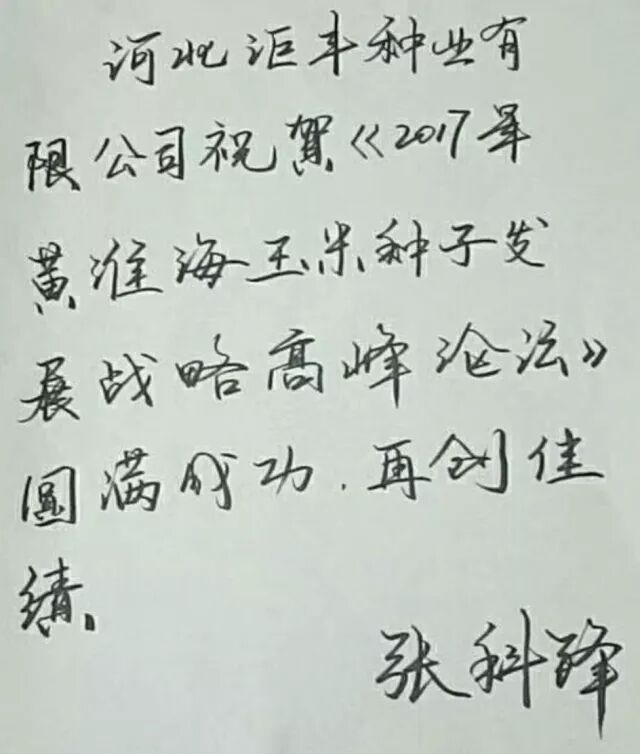 河北沤丰种业有
限公司祝贺《2017年
黄淮海玉米种子发
展战略高峰论坛》
圆满成功.再创佳
绩
张科锋